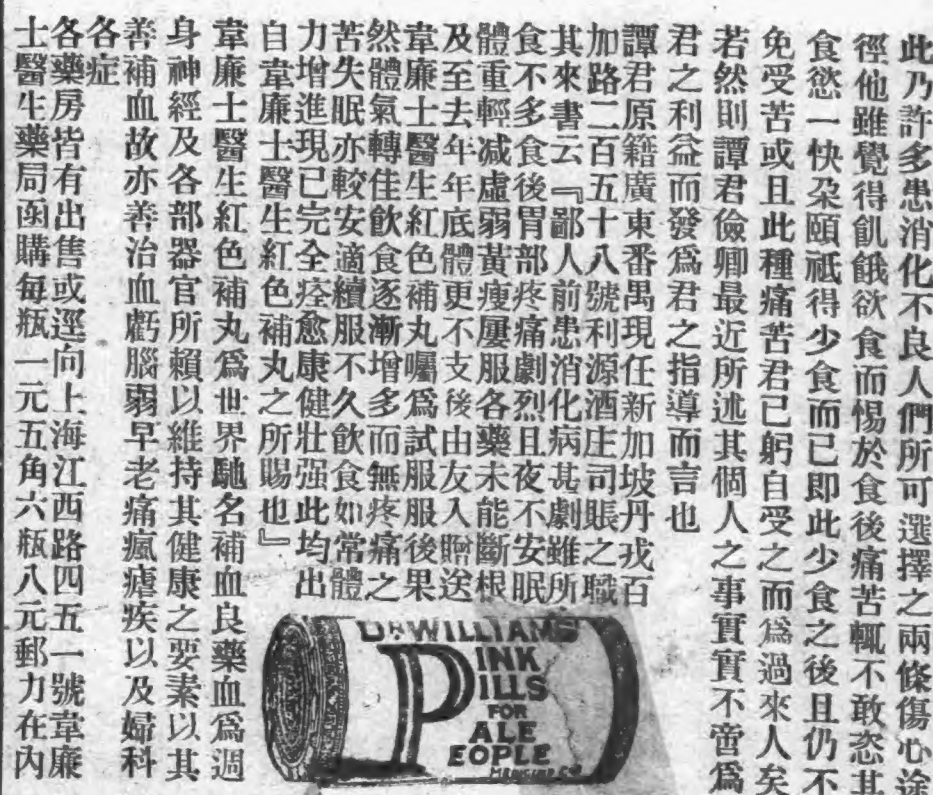 此乃許多患消化不良人們所可選擇之兩條傷心途
徑他雖覺得飢餓欲食而惕於食後痛苦輒不敢恣其
食慾一快朶頤祇得少食而已即此少食之後且仍不
免受苦或且此種痛苦君已躬自受之而爲過來人矣
若然則譚君儉卿最近所述其個人之事實實不啻爲
君之利益而發爲君之指導而言也
譚君原籍廣東番禺現任新加坡丹戎百
加路二百五十八號利源酒庄司賬之職
其來書云『鄙人前患消化病甚劇雖所
食不多食後胃部疼痛劇烈且夜不安眠
體重輕减虛弱黃瘦屢服各藥未能斷根
及至去年年底體更不支後由友人贈送
韋廉士醫生紅色補丸囑爲試服服後果
然體氣轉佳飲食逐漸增多而無疼痛之
苦失眠亦較安適續服不久飲食如常體
力增進現已完全痊愈康健壯强此均出
自韋廉士醫生紅色補丸之所賜也』
韋廉士醫生紅色補丸爲世界馳名補血良藥血爲週
身神經及各部器官所賴以維持其健康之要素以其
善補血故亦善治血虧腦弱早老痛瘋瘧疾以及婦科
各症
各藥房皆有出售或逕向上海江西路四五一號韋廉
士醫生藥局函購每瓶一元五角六瓶八元郵力在內
DR WILLIAMS
PINK
PILLS
FOR
PALE
PEOPLE
MEDICINE Co